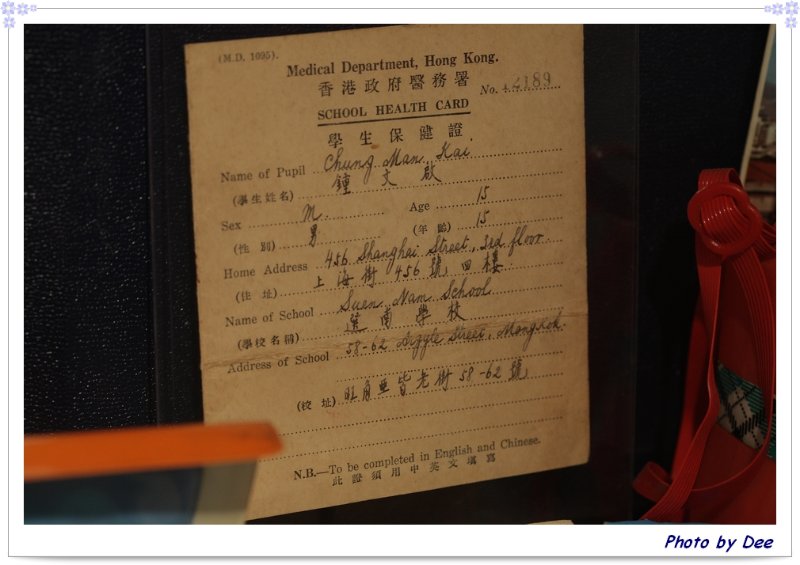 (M.D. 1095).
Medical Department, Hong Kong.
香港政府醫務署
No. 42189
SCHOOL HEALTH CARD
學生保健證
Name of Pupil Chung Man Kai
(學生姓名) 鍾文啟
Sex M. Age 15
(性別) 男 (年齡) 15
Home Address 456 Shanghai Street, 3rd floor
(住址) 上海街 456 號 四樓
Name of School Suen Nam School
(學校名稱) 選南學校
Address of School 58-62 Argyle Street, Mongkok.
(校址) 旺角亜皆老街 58-62 號
N.B.—To be completed in English and Chinese.
此證須用中英文填寫
Photo by Dee